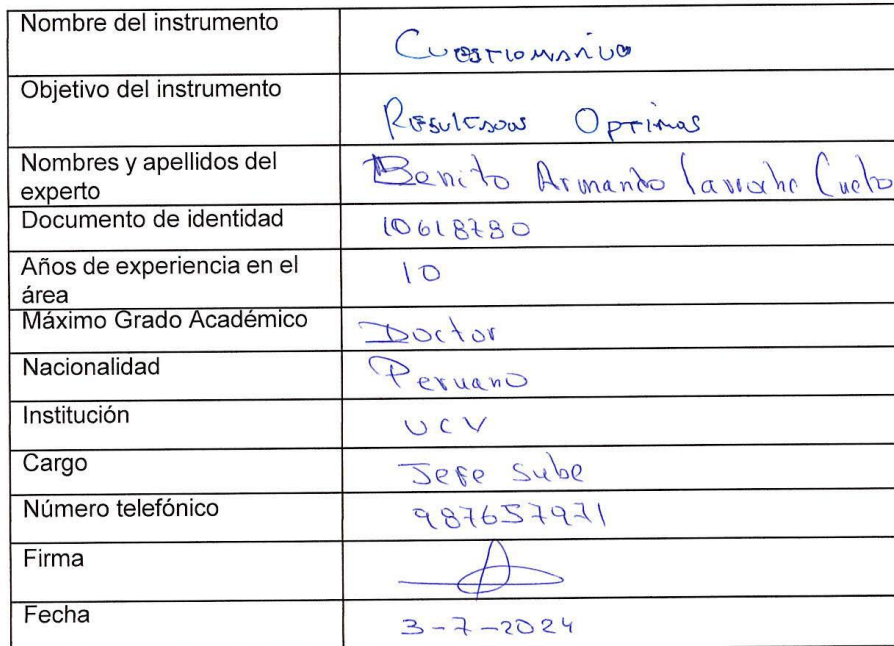 Nombre del instrumento
Cuestionario
Objetivo del instrumento
Resultados Optimos
Nombres y apellidos del
experto
Benito Armando
Documento de identidad
10618780
Años de experiencia en el
área
10
Máximo Grado Académico
Doctor
Nacionalidad
Peruano
Institución
UCV
Cargo
Jefe Sube
Número telefónico
987657971
Firma
Fecha
3-7-2024